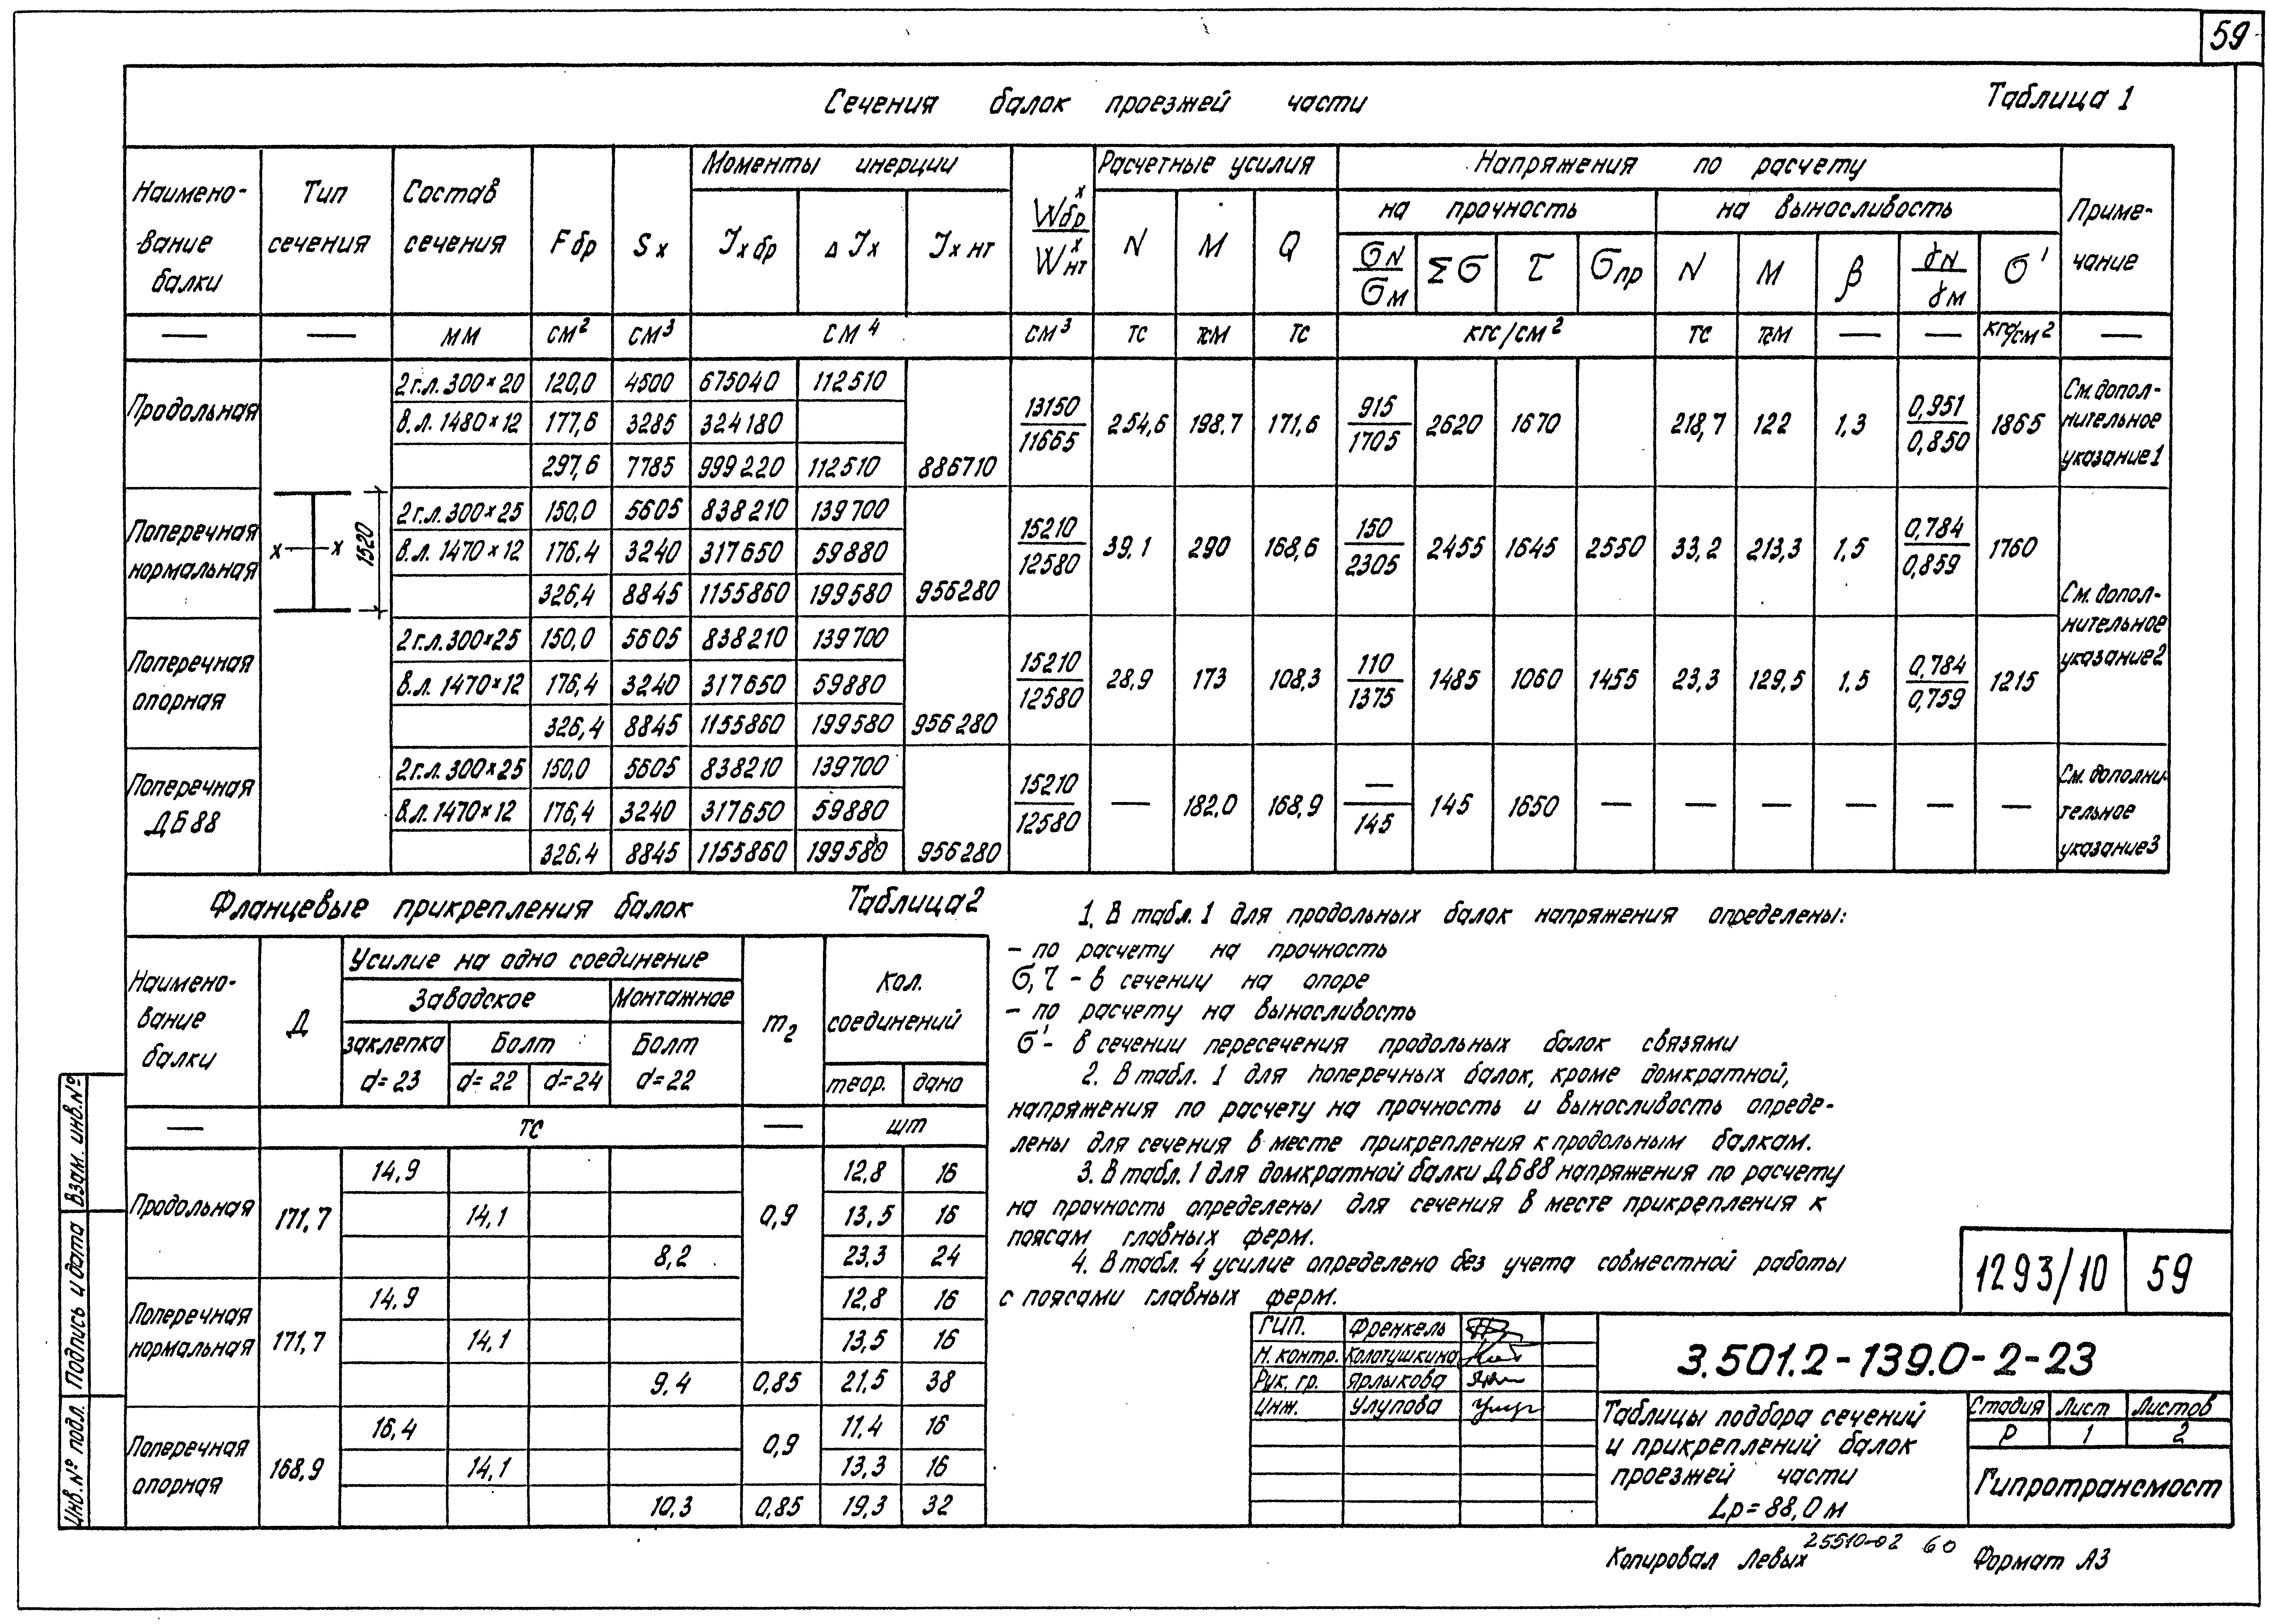 59
Сечения балок проезжей части
Таблица 1
Наимено-
вание
балки
Тип
сечения
Состав
сечения
Fбр
Sх
Моменты инерции
Jх бр
Δ Jх
Jх нт
Wбр^х / Wнт^х
Расчетные усилия
N M Q
Напряжения по расчету
на прочность
на выносливость
σN/σM Σσ τ σпр
N M β γN/γM σ'
Приме-
чание
— — мм см² см³ см⁴ см³ тс тсм тс кгс/см² тс тсм — — кгс/см² —
Продольная
2г.л. 300×20 120,0 4500 675040 112510
в.л. 1480×12 177,6 3285 324180
297,6 7785 999220 112510 886710
13150/11665 254,6 198,7 171,6 915/1705 2620 1670 218,7 122 1,3 0,951/0,850 1865
См. допол-
нительное
указание 1
Поперечная
нормальная
х х
1520
2г.л. 300×25 150,0 5605 838210 139700
в.л. 1470×12 176,4 3240 317650 59880
326,4 8845 1155860 199580 956280
15210/12580 39,1 290 168,6 150/2305 2455 1645 2550 33,2 213,3 1,5 0,784/0,859 1760
См. допол-
нительное
указание 2
Поперечная
опорная
2г.л. 300×25 150,0 5605 838210 139700
в.л. 1470×12 176,4 3240 317650 59880
326,4 8845 1155860 199580 956280
15210/12580 28,9 173 108,3 110/1375 1485 1060 1455 23,3 129,5 1,5 0,784/0,759 1215
Поперечная
ДБ88
2г.л. 300×25 150,0 5605 838210 139700
в.л. 1470×12 176,4 3240 317650 59880
326,4 8845 1155860 199580 956280
15210/12580 — 182,0 168,9 —/145 145 1650 — — — — — —
См. дополни-
тельное
указание 3
Фланцевые прикрепления балок
Таблица 2
Наимено-
вание
балки
Д
Усилие на одно соединение
Заводское
Монтажное
заклепка
d=23
Болт
d=22 d=24
Болт
d=22
m₂
Кол.
соединений
теор. дано
— тс — шт
Продольная 171,7
14,9 12,8 16
14,1 0,9 13,5 16
8,2 23,3 24
Поперечная
нормальная 171,7
14,9 12,8 16
14,1 13,5 16
9,4 0,85 21,5 38
Поперечная
опорная 168,9
16,4 0,9 11,4 16
14,1 13,3 16
10,3 0,85 19,3 32
1. В табл. 1 для продольных балок напряжения определены:
– по расчету на прочность
σ, τ – в сечении на опоре
– по расчету на выносливость
σ' - в сечении пересечения продольных балок связями
2. В табл. 1 для поперечных балок, кроме домкратной,
напряжения по расчету на прочность и выносливость опреде-
лены для сечения в месте прикрепления к продольным балкам.
3. В табл. 1 для домкратной балки ДБ88 напряжения по расчету
на прочность определены для сечения в месте прикрепления к
поясам главных ферм.
4. В табл. 4 усилие определено без учета совместной работы
с поясами главных ферм.
1293/10 59
ГИП. Френкель
Н. контр. Колотушкина
Рук. гр. Ярлыкова
Инж. Улупова
3.501.2-139.0-2-23
Таблицы подбора сечений
и прикреплений балок
проезжей части
Lр=88,0 м
Стадия Лист Листов
Р 1 2
Гипротрансмост
Инв.№ подл. Подпись и дата Взам. инв.№
Копировал Левых
25510-02 60
Формат А3